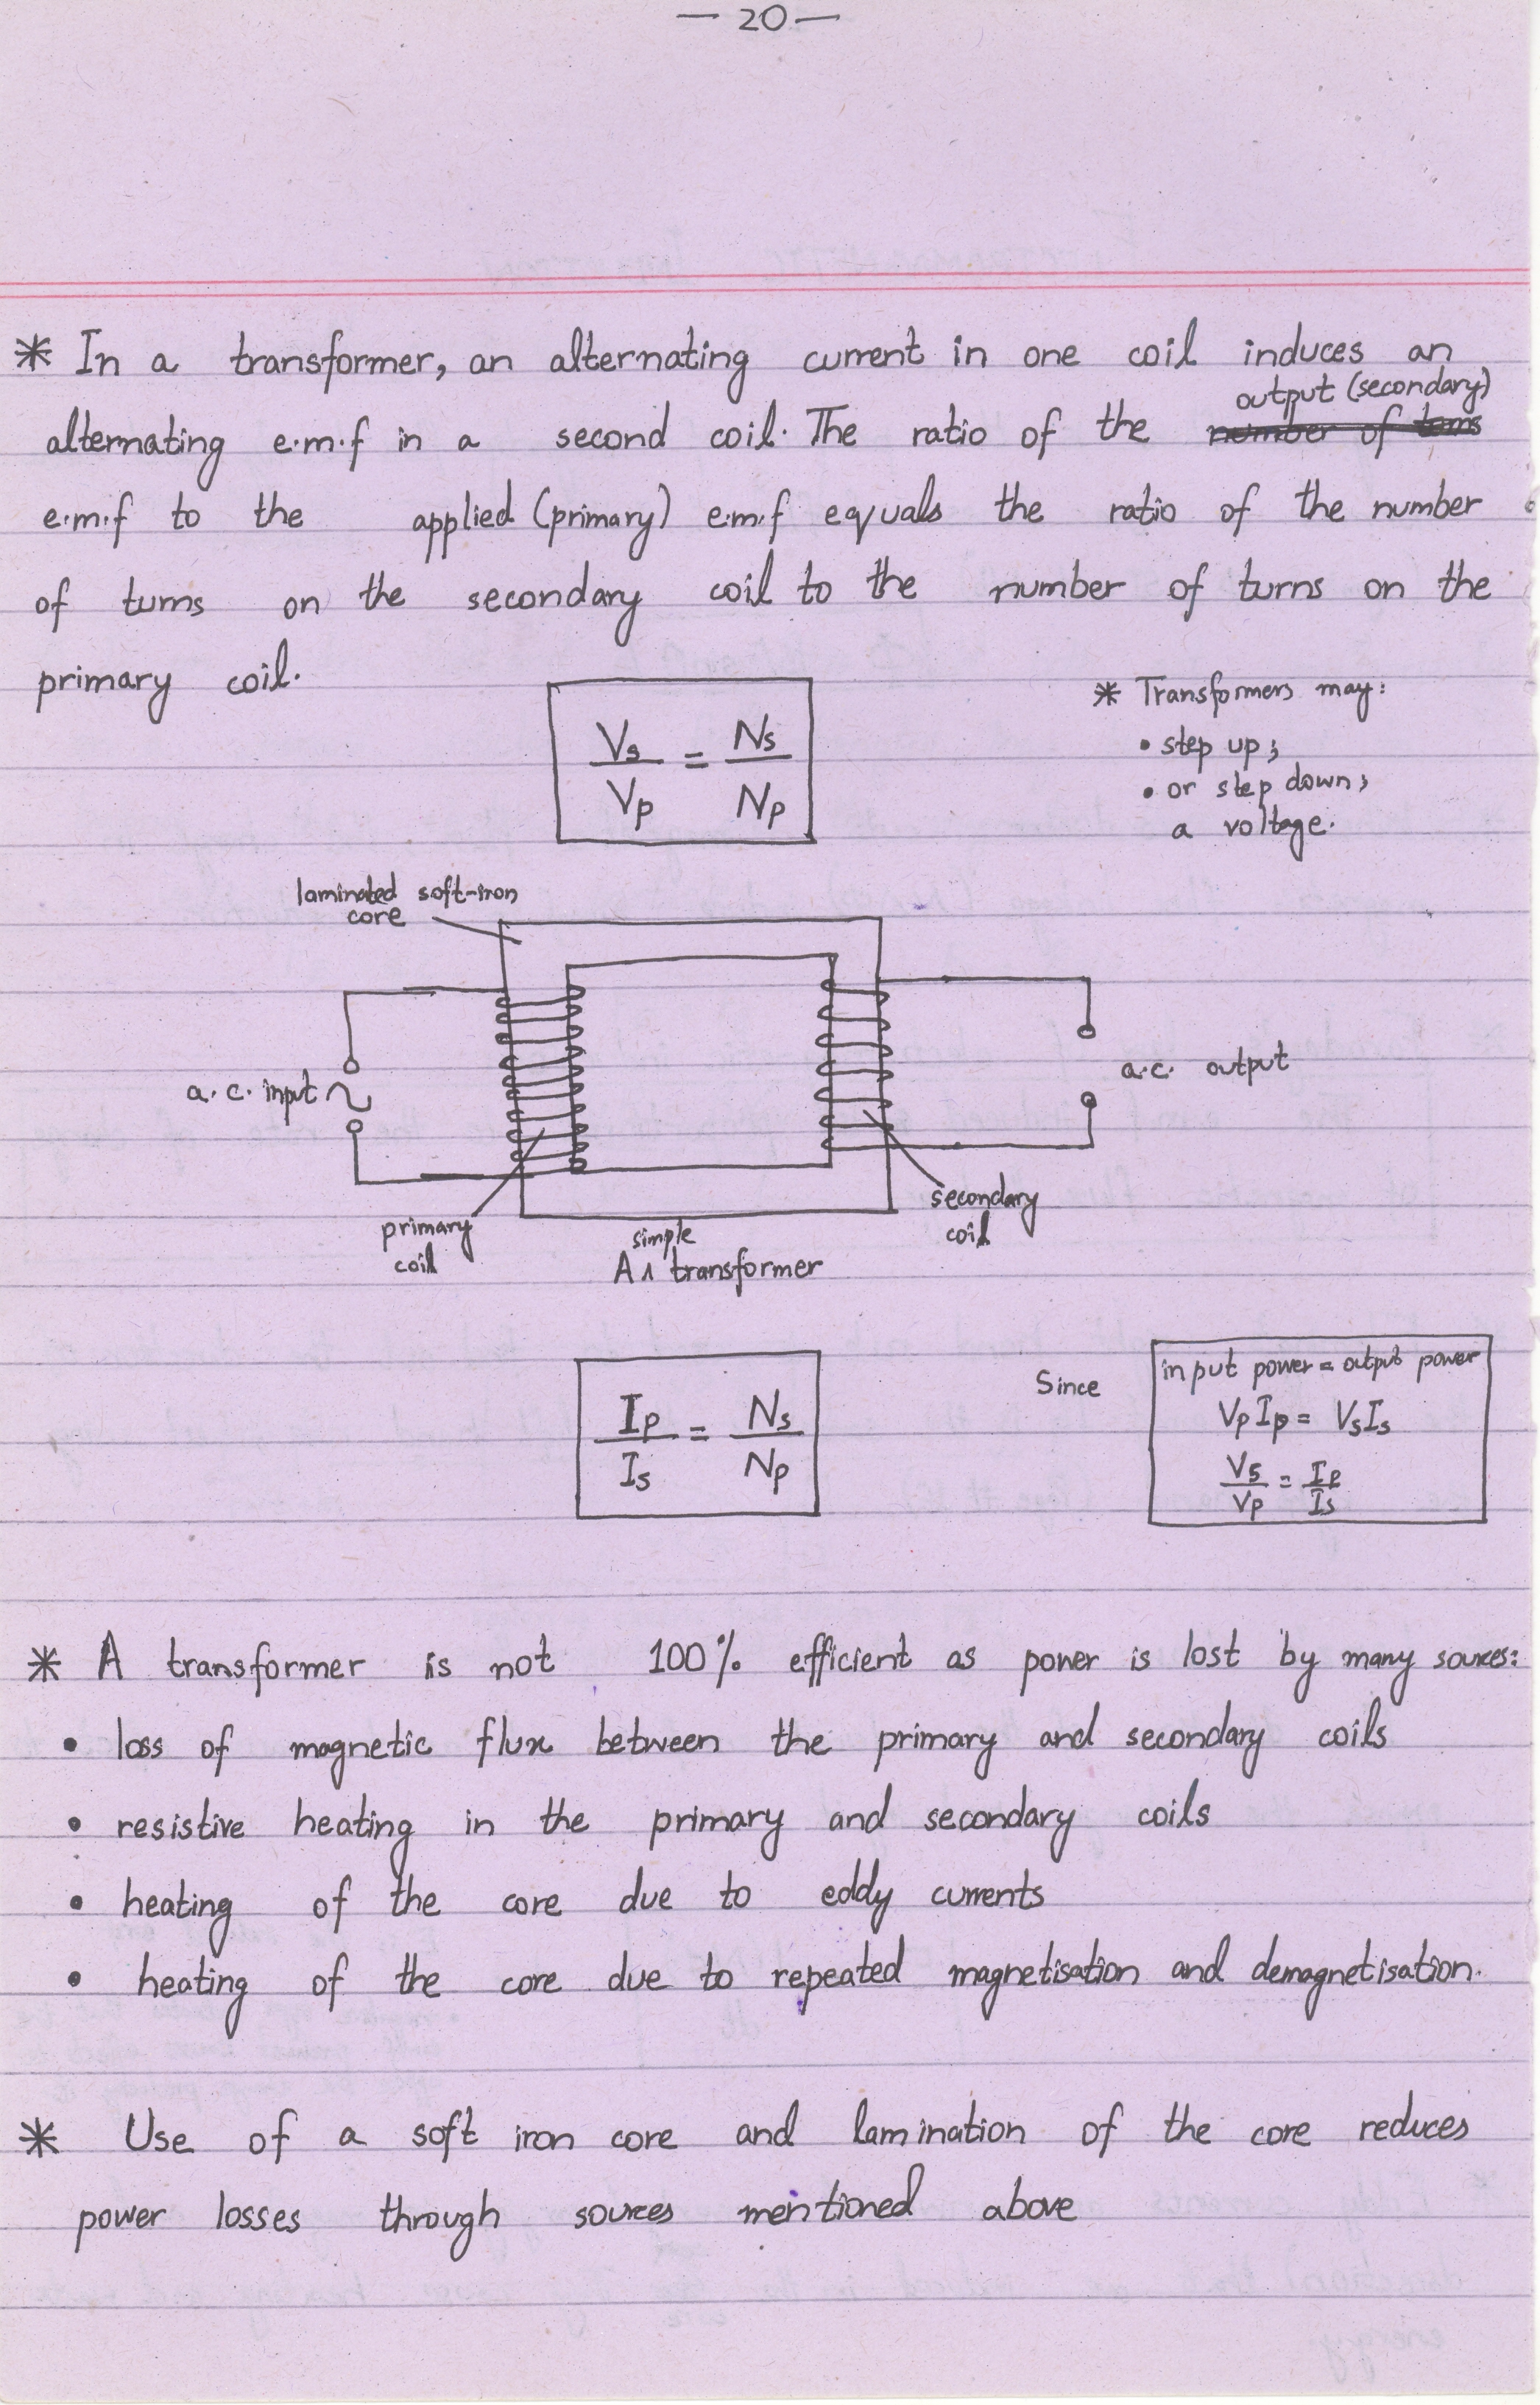 — 20 —
* In a transformer, an alternating current in one coil induces an
alternating e.m.f in a second coil. The ratio of the output (secondary) number of turns
e.m.f to the applied (primary) e.m.f equals the ratio of the number
of turns on the secondary coil to the number of turns on the
primary coil.
Vs/Vp = Ns/Np
* Transformers may:
• step up;
• or step down;
a voltage.
laminated soft-iron
core
a.c. input
a.c. output
primary
coil
secondary
coil
A simple transformer
Ip/Is = Ns/Np
Since
input power = output power
VpIp = VsIs
Vs/Vp = Ip/Is
* A transformer is not 100% efficient as power is lost by many sources:
• loss of magnetic flux between the primary and secondary coils
• resistive heating in the primary and secondary coils
• heating of the core due to eddy currents
• heating of the core due to repeated magnetisation and demagnetisation.
* Use of a soft iron core and lamination of the core reduces
power losses through sources mentioned above